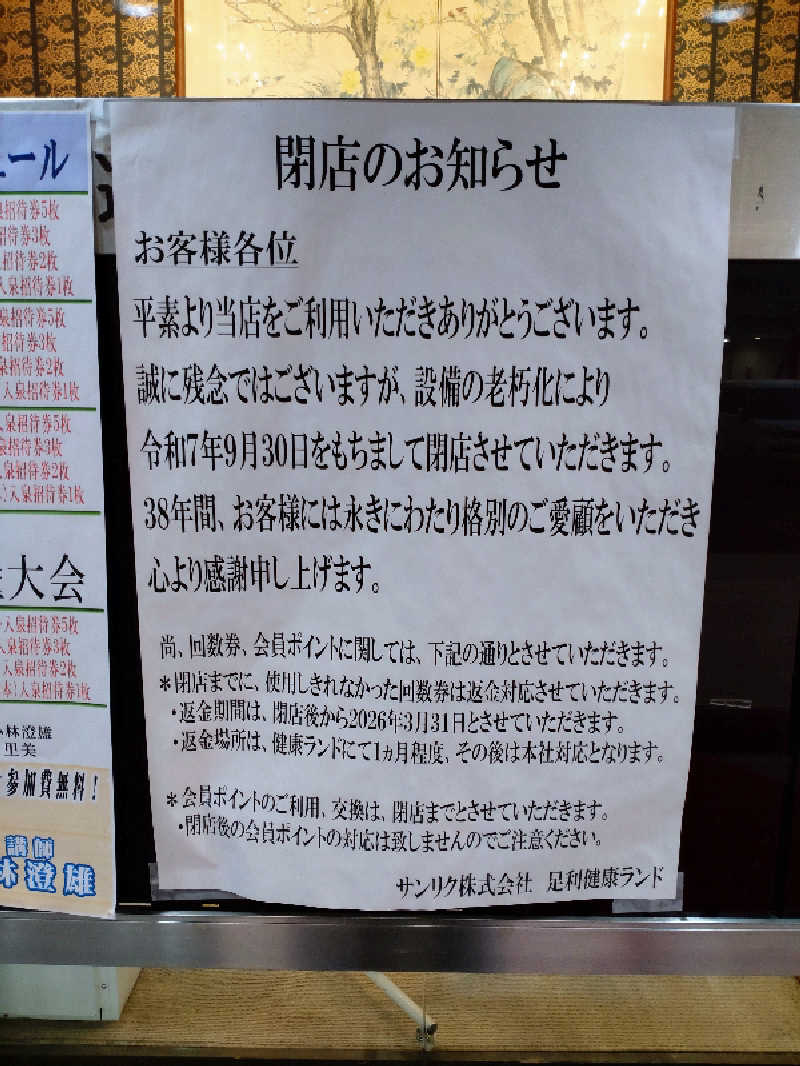 閉店のお知らせ
お客様各位
平素より当店をご利用いただきありがとうございます。
誠に残念ではございますが、設備の老朽化により
令和7年9月30日をもちまして閉店させていただきます。
38年間、お客様には永きにわたり格別のご愛顧をいただき
心より感謝申し上げます。
尚、回数券、会員ポイントに関しては、下記の通りとさせていただきます。
＊閉店までに、使用しきれなかった回数券は返金対応させていただきます。
・返金期間は、閉店後から2026年3月31日とさせていただきます。
・返金場所は、健康ランドにて1ヵ月程度、その後は本社対応となります。
＊会員ポイントのご利用、交換は、閉店までとさせていただきます。
・閉店後の会員ポイントの対応は致しませんのでご注意ください。
サンリク株式会社 足利健康ランド
ール
招待券5枚
招待券3枚
招待券2枚
入泉招待券1枚
泉招待券5枚
招待券3枚
泉招待券2枚
入泉招待券1枚
入泉招待券5枚
泉招待券3枚
入泉招待券2枚
入泉招待券1枚
大会
入泉招待券5枚
入泉招待券3枚
入泉招待券2枚
本)入泉招待券1枚
林澄雄
里美
参加費無料！
講師
林澄雄